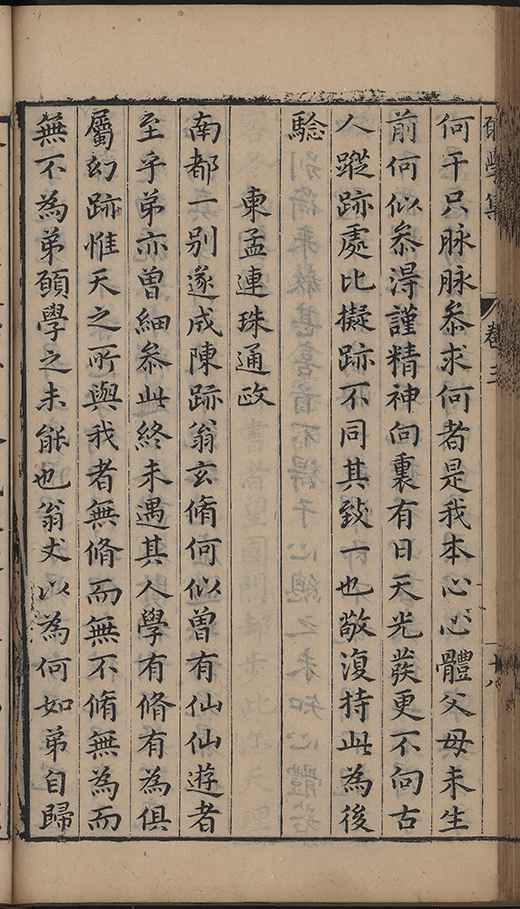 學集
卷
十八
何干只脉脉叅求何者是我本心心體父母未生
前何似叅淂謹精神向裏有日天光發更不向古
人蹤跡處比擬跡不同其致一也敬復持此為後
驗
柬孟連珠通政
南都一别遂成陳跡翁玄脩何似曾有仙仙遊者
至乎弟亦曾細叅此終未遇其人學有脩有為俱
屬幻跡惟天之所與我者無脩而無不脩無為而
無不為弟願學之未能也翁丈以為何如弟自歸